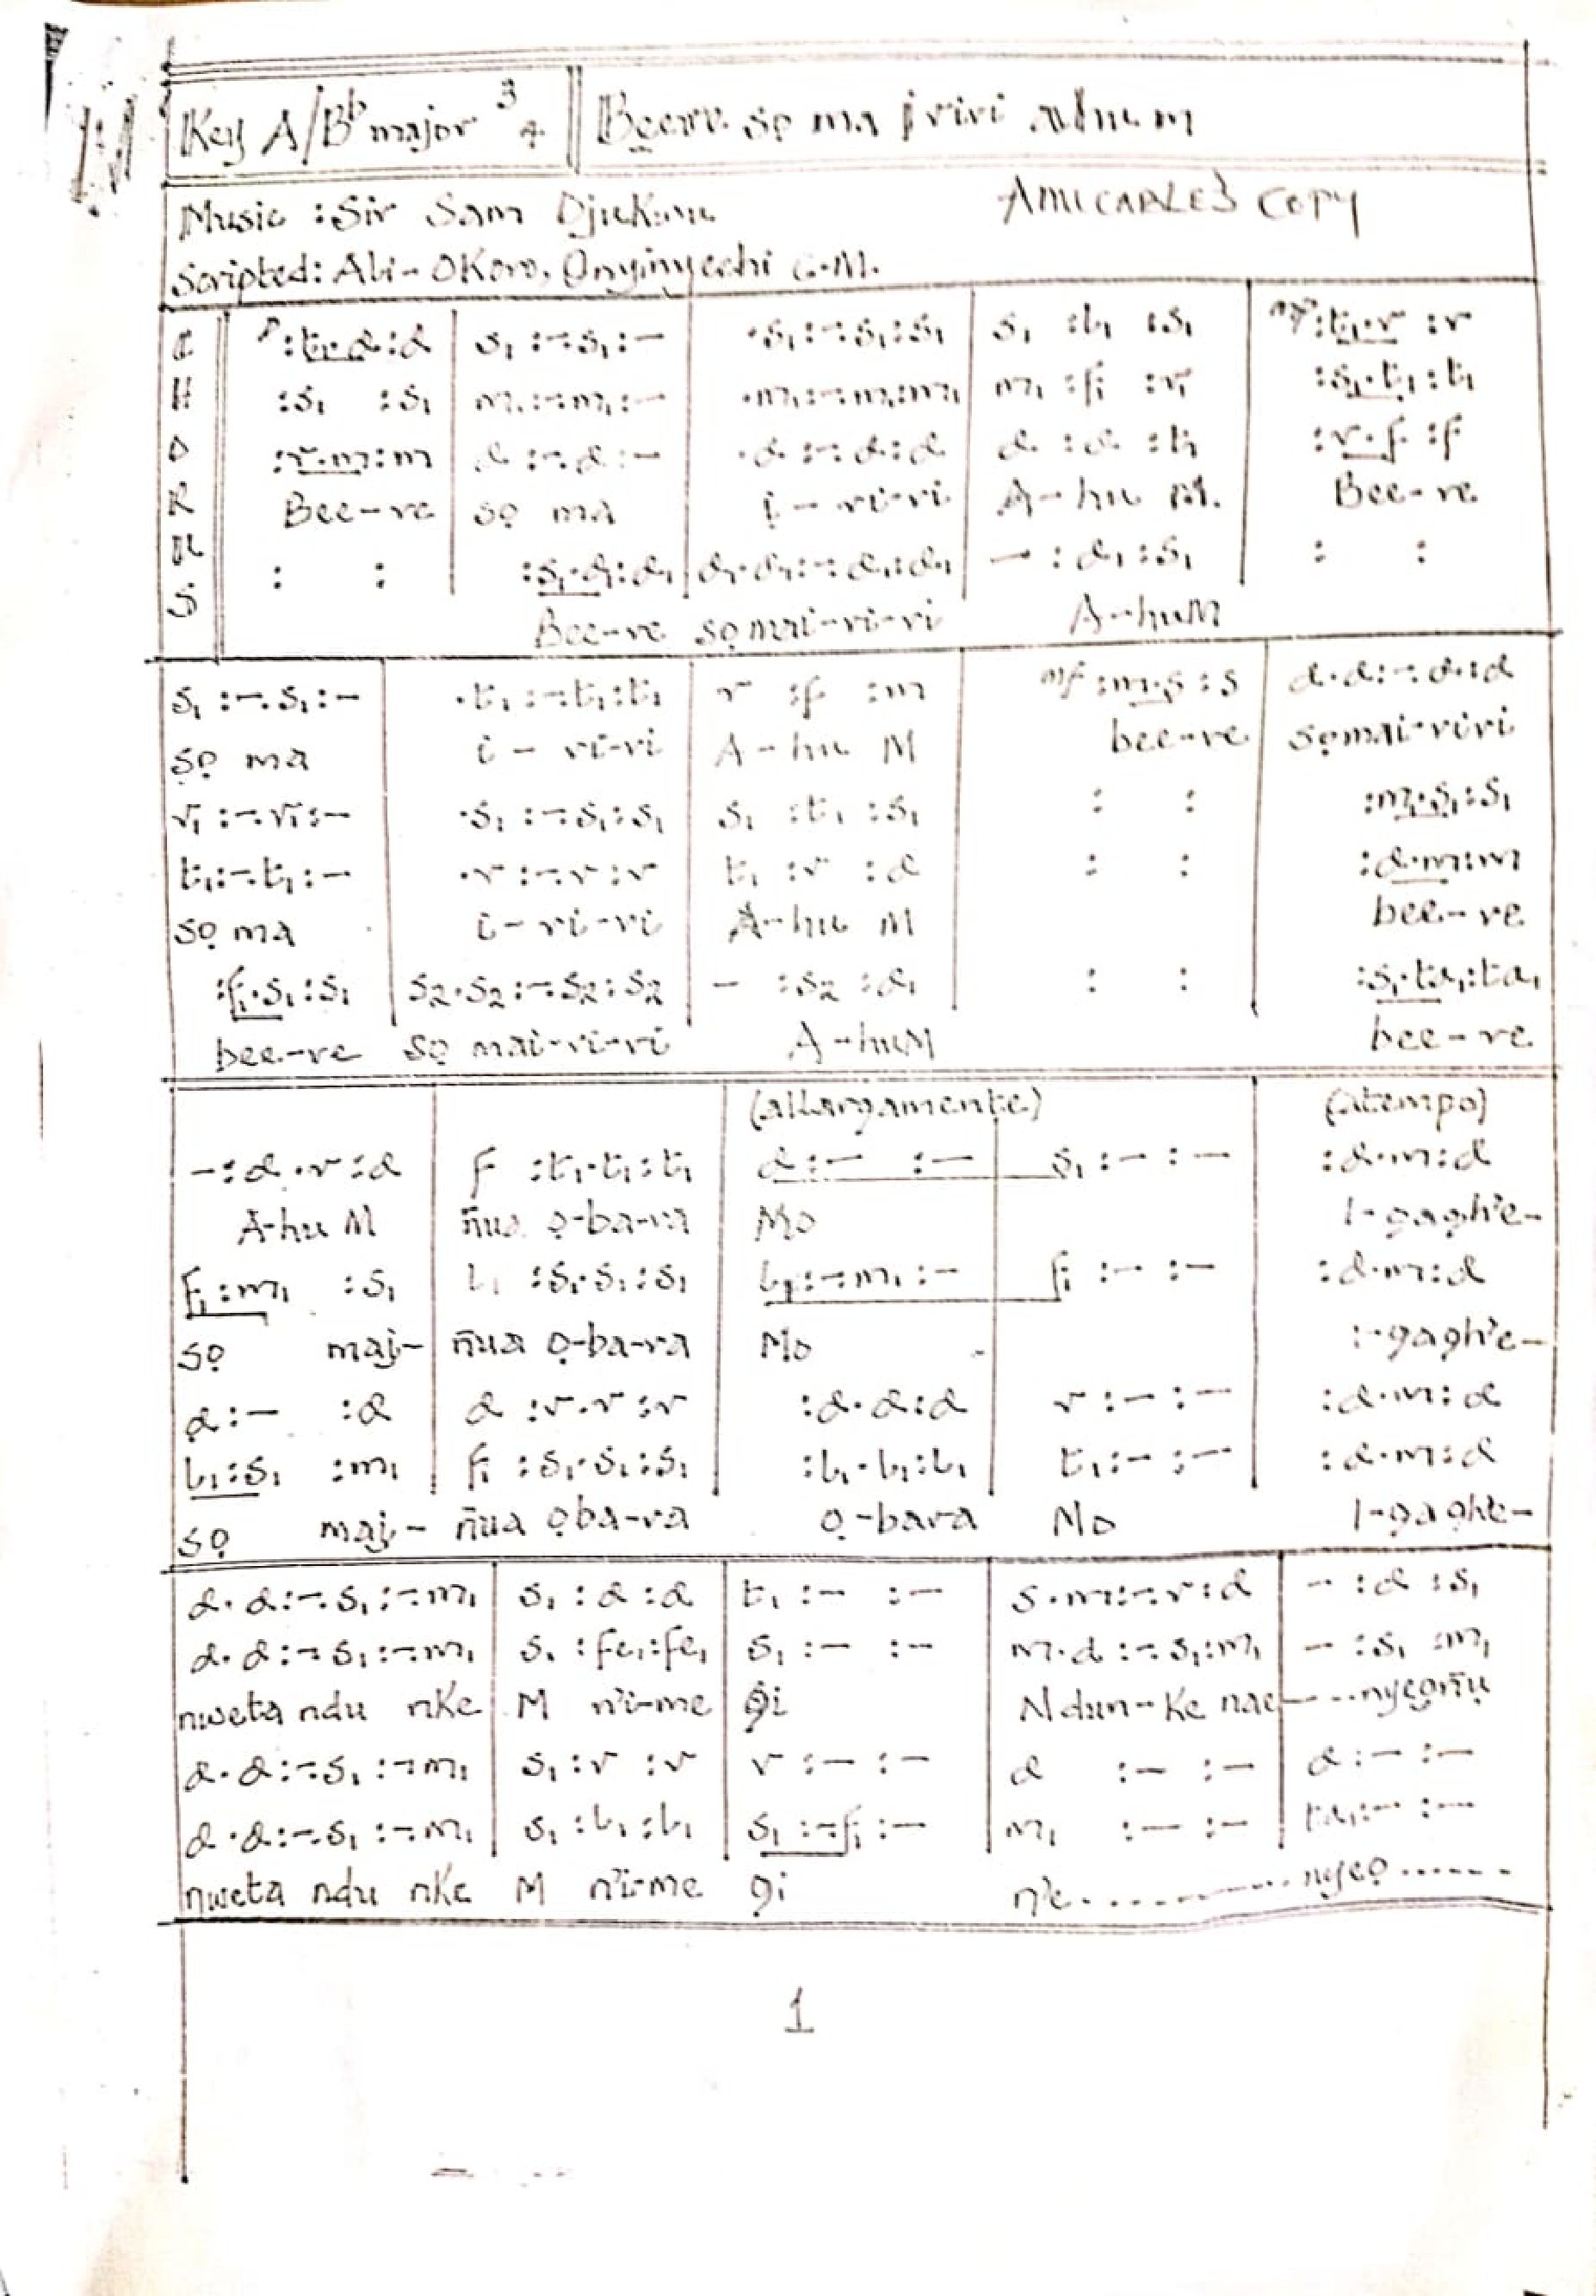 Key A/B♭ major 3 4 Beere sọ ma iriri ahụ m
Music : Sir Sam Ojukwu
AMICABLE'S COPY
Scripted: Ali-Okoro, Onyinyechi C.M.
CHORUS
p :t₁.d:d | s₁:-.s₁:- | .s₁:-.s₁:s₁ | s₁ :l₁ :s₁ | mf :t₁.r :r
:s₁ :s₁ | m₁:-.m₁:- | .m₁:-.m₁:m₁ | m₁ :f₁ :r₁ | :s₁.t₁:t₁
:r.m:m | d:-.d:- | .d:-.d:d | d :d :t₁ | :r.f :f
Bee-re sọ ma ị - ri-ri A-hu M. Bee-re
: : | :s₁.d₁:d₁ | d₁.d₁:-.d₁:d₁ | - :d₁:s₁ | : :
Bee-re sọ mai-ri-ri A-huM
s₁:-.s₁:- | .t₁:-.t₁:t₁ | r :f :m | mf :m.s :s | d.d:-.d:d
sọ ma i - ri-ri A-hu M bee-re sọmai-riri
r₁:-.r₁:- | .s₁:-.s₁:s₁ | s₁ :t₁ :s₁ | : : | :m₁.s₁:s₁
t₁:-.t₁:- | .r:-.r:r | t₁ :r :d | : : | :d.m:m
sọ ma i-ri-ri A-hu M bee-re
:f₁.s₁:s₁ | s₂.s₂:-.s₂:s₂ | - :s₂ :d₁ | : : | :s₁.ta₁:ta₁
bee-re sọ mai-ri-ri A-huM bee-re
(allargamente) (atempo)
-:d.r:d | f :t₁.t₁:t₁ | d:- :- | s₁:- :- | :d.m:d
A-hu M ñua ọ-ba-ra Mo I-gagh'e-
f₁:m₁ :s₁ | l₁ :s₁.s₁:s₁ | l₁:-.m₁:- | f₁ :- :- | :d.m:d
sọ maị- ñua ọ-ba-ra Mo I-gagh'e-
d:- :d | d :r.r:r | :d.d:d | r:- :- | :d.m:d
l₁:s₁ :m₁ | f₁ :s₁.s₁:s₁ | :l₁.l₁:l₁ | t₁:- :- | :d.m:d
sọ maị- ñua ọba-ra ọ-bara Mo I-gaghe-
d.d:-.s₁:-.m₁ | s₁ :d :d | t₁ :- :- | s.m:-.r:d | - :d :s₁
d.d:-.s₁:-.m₁ | s₁ :fe₁:fe₁ | s₁ :- :- | m.d:-.s₁:m₁ | - :s₁ :m₁
nweta ndu nke M n'i-me gị Ndun-ke nae-.....nyeọñụ
d.d:-.s₁:-.m₁ | s₁ :r :r | r :- :- | d :- :- | d:- :-
d.d:-.s₁:-.m₁ | s₁ :l₁ :l₁ | s₁:-.f₁:- | m₁ :- :- | ta₁:- :-
nweta ndu nke M n'i-me gị n'e...........nyeọ......
1